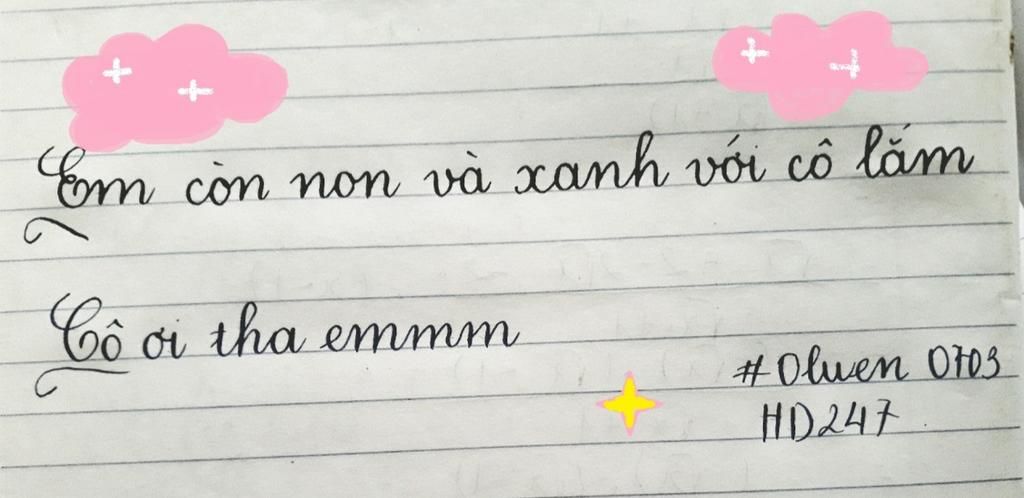 Em còn non và xanh với cô lắm
Cô ơi tha emmmm
#Oluen 0703
HD247